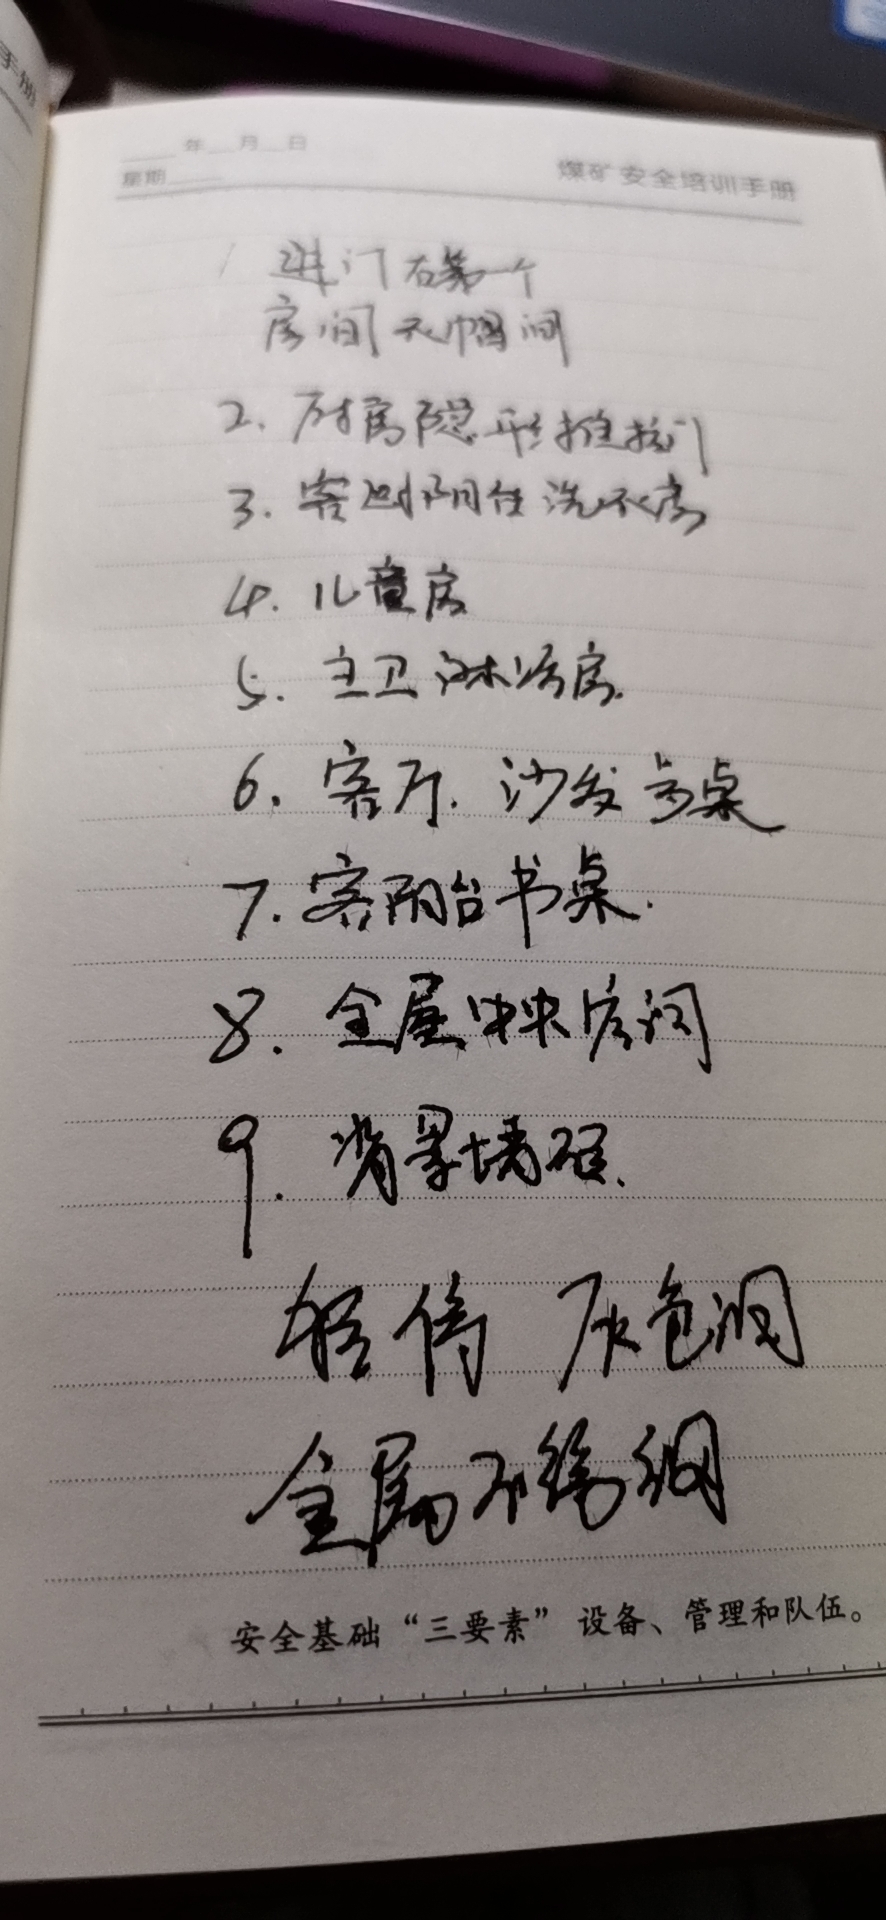 手册
年 月 日
星期
煤矿安全培训手册
1 进门右第一个
房间衣帽间
2. 厨房隐形推拉门
3. 客 阳台洗衣房
4. 儿童房
5. 主卫淋浴房.
6. 客厅. 沙发 书桌
7. 客阳台书桌.
8. 全屋中央空调
9. 背景墙砖.
灰色调
全屋不锈钢
安全基础“三要素”设备、管理和队伍。